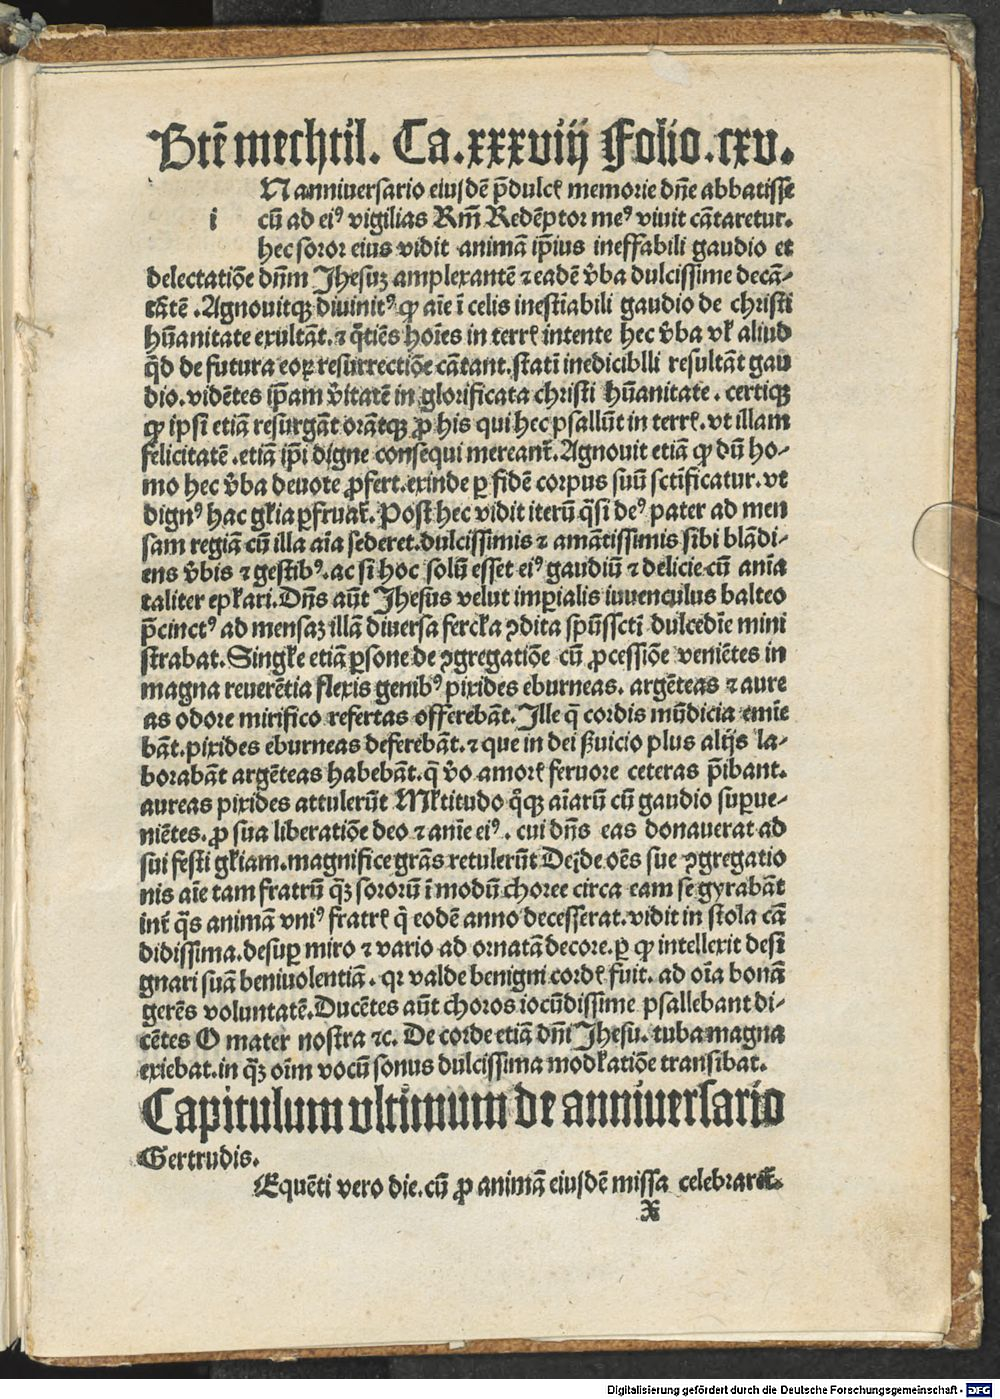 Btē mechtil. Ca.xxxviij Folio.cxv.
N anniuersario eiusdē p̄dulcꝭ memorie dn̄e abbatisse
i cū ad eiꝰ vigilias Rm̄ Redēptor meꝰ viuit cātaretur.
hec soror eius vidit animā ip̄ius ineffabili gaudio et
delectatiōe dn̄m Jhesuꝫ amplexantē ⁊ eadē v̄ba dulcissime decā-
tātē .Agnouitqꝫ diuinitꝰ ꝙ aīe ī celis inestīabili gaudio de christi
hūanitate exultāt.⁊ q̄tiēs hoīes in terrꝭ intente hec v̄ba vl̓ aliud
q̄d de futura eoꝝ resurrectiōe cātant.statī inedicibili resultāt gau
dio.vidētes ip̄am v̄itatē in glorificata christi hūanitate. certiqꝫ
ꝙ ipsi etiā resurgāt orātqꝫ ꝓ his qui hec psallūt in terrꝭ.vt illam
felicitatē .etiā ip̄i digne consequi mereant̄.Agnouit etiā ꝙ dū ho-
mo hec v̄ba deuote ꝓfert.exinde ꝑ fidē corpus suū sctīficatur.vt
dignꝰ hac gl̓ia ꝑfruat̄.Post hec vidit iterū q̄si deꝰ pater ad men
sam regiā cū illa aīa sederet.dulcissimis ⁊ amātissimis sibi blādi-
ens v̄bis ⁊ gestibꝰ.ac si hoc solū esset eiꝰ gaudiū ⁊ delicie cū anīa
taliter epl̓ari.Dn̄s aūt Jhesus velut imꝑialis iuuenculus balteo
p̄cinctꝰ ad mensaꝫ illā diuersa fercl̓a ꝯdita sp̄ussctī dulcedīe mini
strabat.Singl̓e etiā ꝑsone de ꝯgregatiōe cū ꝓcessiōe veniētes in
magna reuerētia flexis genibꝰ pixides eburneas. argēteas ⁊ aure
as odore mirifico refertas offerebāt.Ille q̄ cordis mūdicia emīe
bāt.pixides eburneas deferebāt.⁊ que in dei ẜuicio plus alijs la-
borabāt argēteas habebāt.q̄ v̄o amorꝭ feruore ceteras p̄ibant.
aureas pixides attulerūt Ml̓titudo q̄qꝫ aīarū cū gaudio suꝑue-
niētes.ꝓ sua liberatiōe deo ⁊ anīe eiꝰ. cui dn̄s eas donauerat ad
sui festi gl̓iam.magnifice grās retulerūt Deīde oēs sue ꝯgregatio
nis aīe tam fratrū q̄ꝫ sororū ī modū choree circa eam se gyrabāt
int̄ q̄s animā vniꝰ fratrꝭ q̄ eodē anno decesserat.vidit in stola cā
didissima.desuꝑ miro ⁊ vario ad ornatā decore.ꝑ ꝙ intellexit desi
gnari suā beniuolentiā. qꝛ valde benigni cordꝭ fuit. ad oīa bonā
gerēs voluntatē.Ducētes aūt choros iocūdissime psallebant di-
cētes O mater nostra ⁊c. De corde etiā dn̄i Jhesu. tuba magna
exiebat.in q̄ꝫ oīm vocū sonus dulcissima modl̓atiōe transibat.
Capitulum vltimum de anniuersario
Gertrudis.
Equēti vero die.cū ꝓ animā eiusdē missa celebraret̄.
x
Digitalisierung gefördert durch die Deutsche Forschungsgemeinschaft - DFG